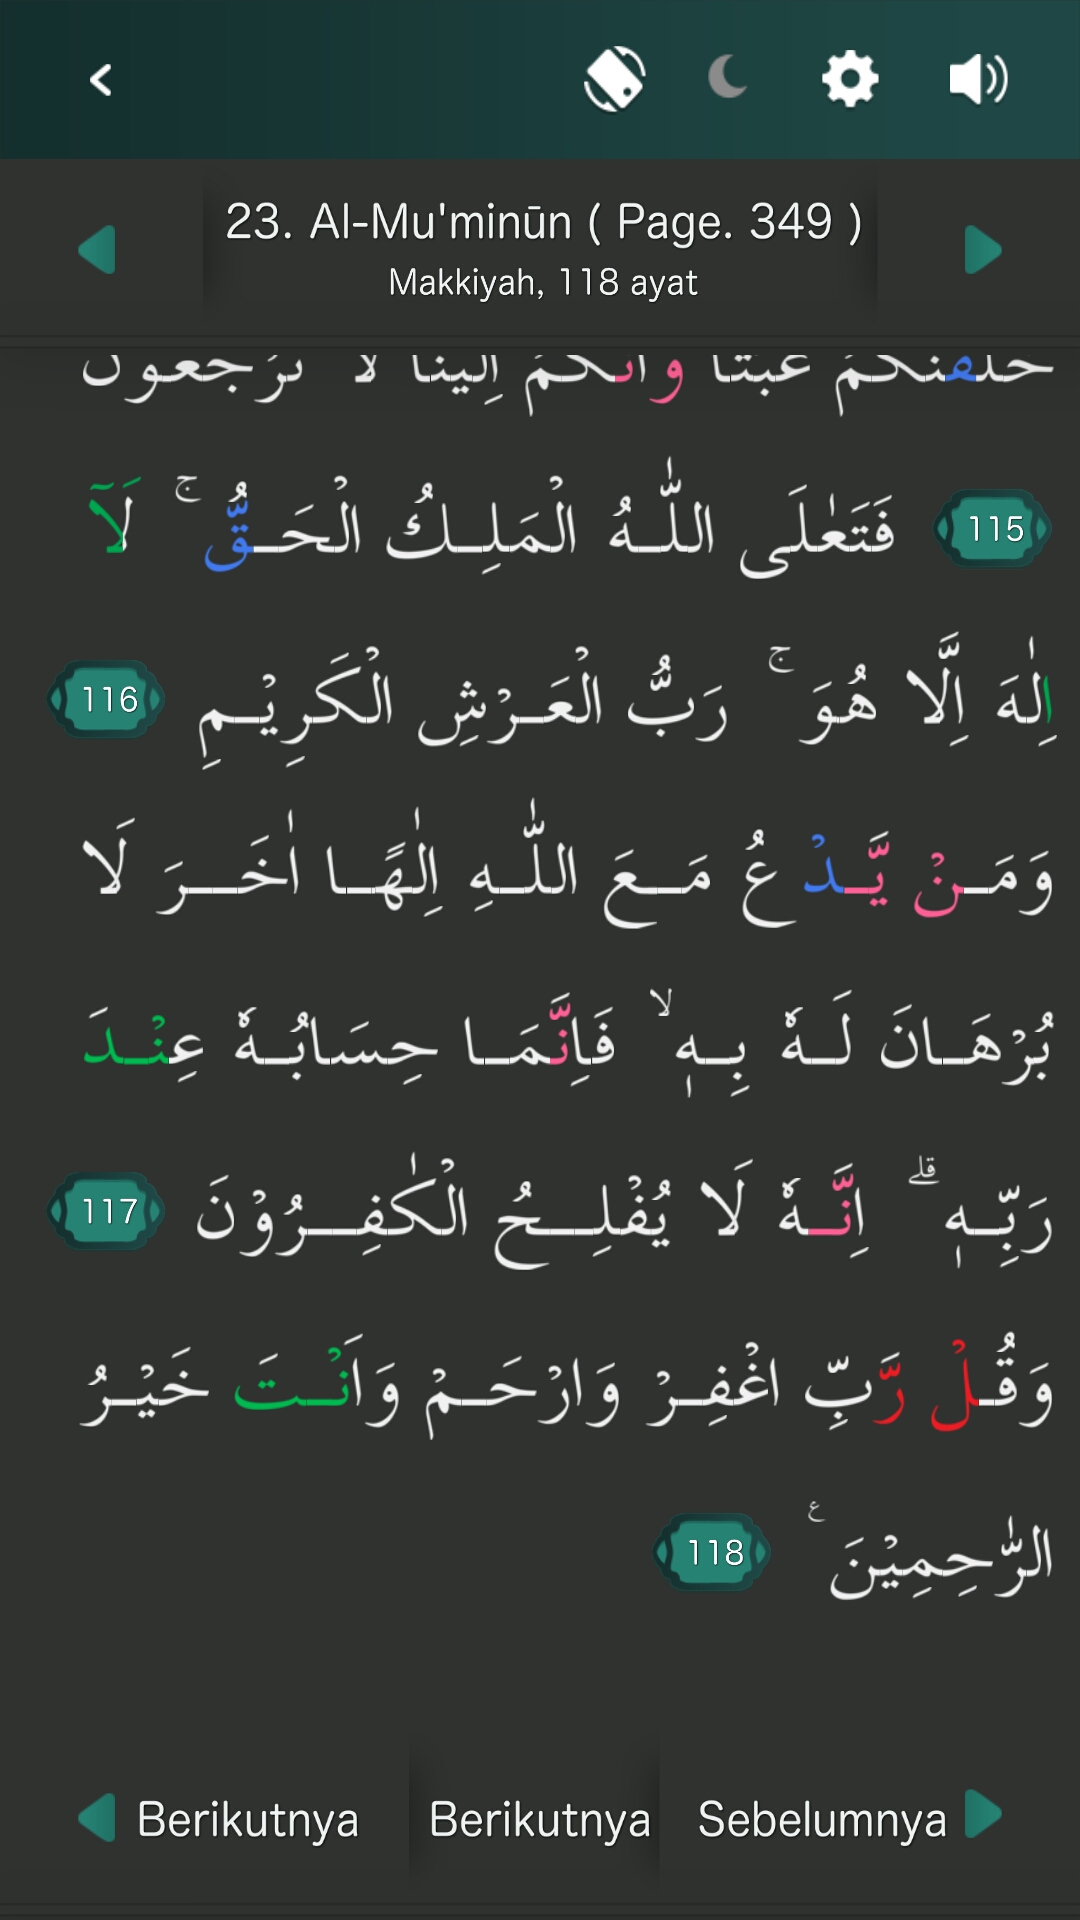 23. Al-Mu'minūn ( Page. 349 )
Makkiyah, 118 ayat
خلقنكم عبثا وانكم الينا لا ترجعون
115 فَتَعٰلَى اللّٰهُ الْمَلِكُ الْحَقُّ ۚ لَآ
اِلٰهَ اِلَّا هُوَ ۚ رَبُّ الْعَرْشِ الْكَرِيْمِ 116
وَمَنْ يَّدْعُ مَعَ اللّٰهِ اِلٰهًا اٰخَرَ لَا
بُرْهَانَ لَهٗ بِهٖ ۙ فَاِنَّمَا حِسَابُهٗ عِنْدَ
رَبِّهٖ ۗ اِنَّهٗ لَا يُفْلِحُ الْكٰفِرُوْنَ 117
وَقُلْ رَّبِّ اغْفِرْ وَارْحَمْ وَاَنْتَ خَيْرُ
الرّٰحِمِيْنَ ࣖ 118
Berikutnya Berikutnya Sebelumnya